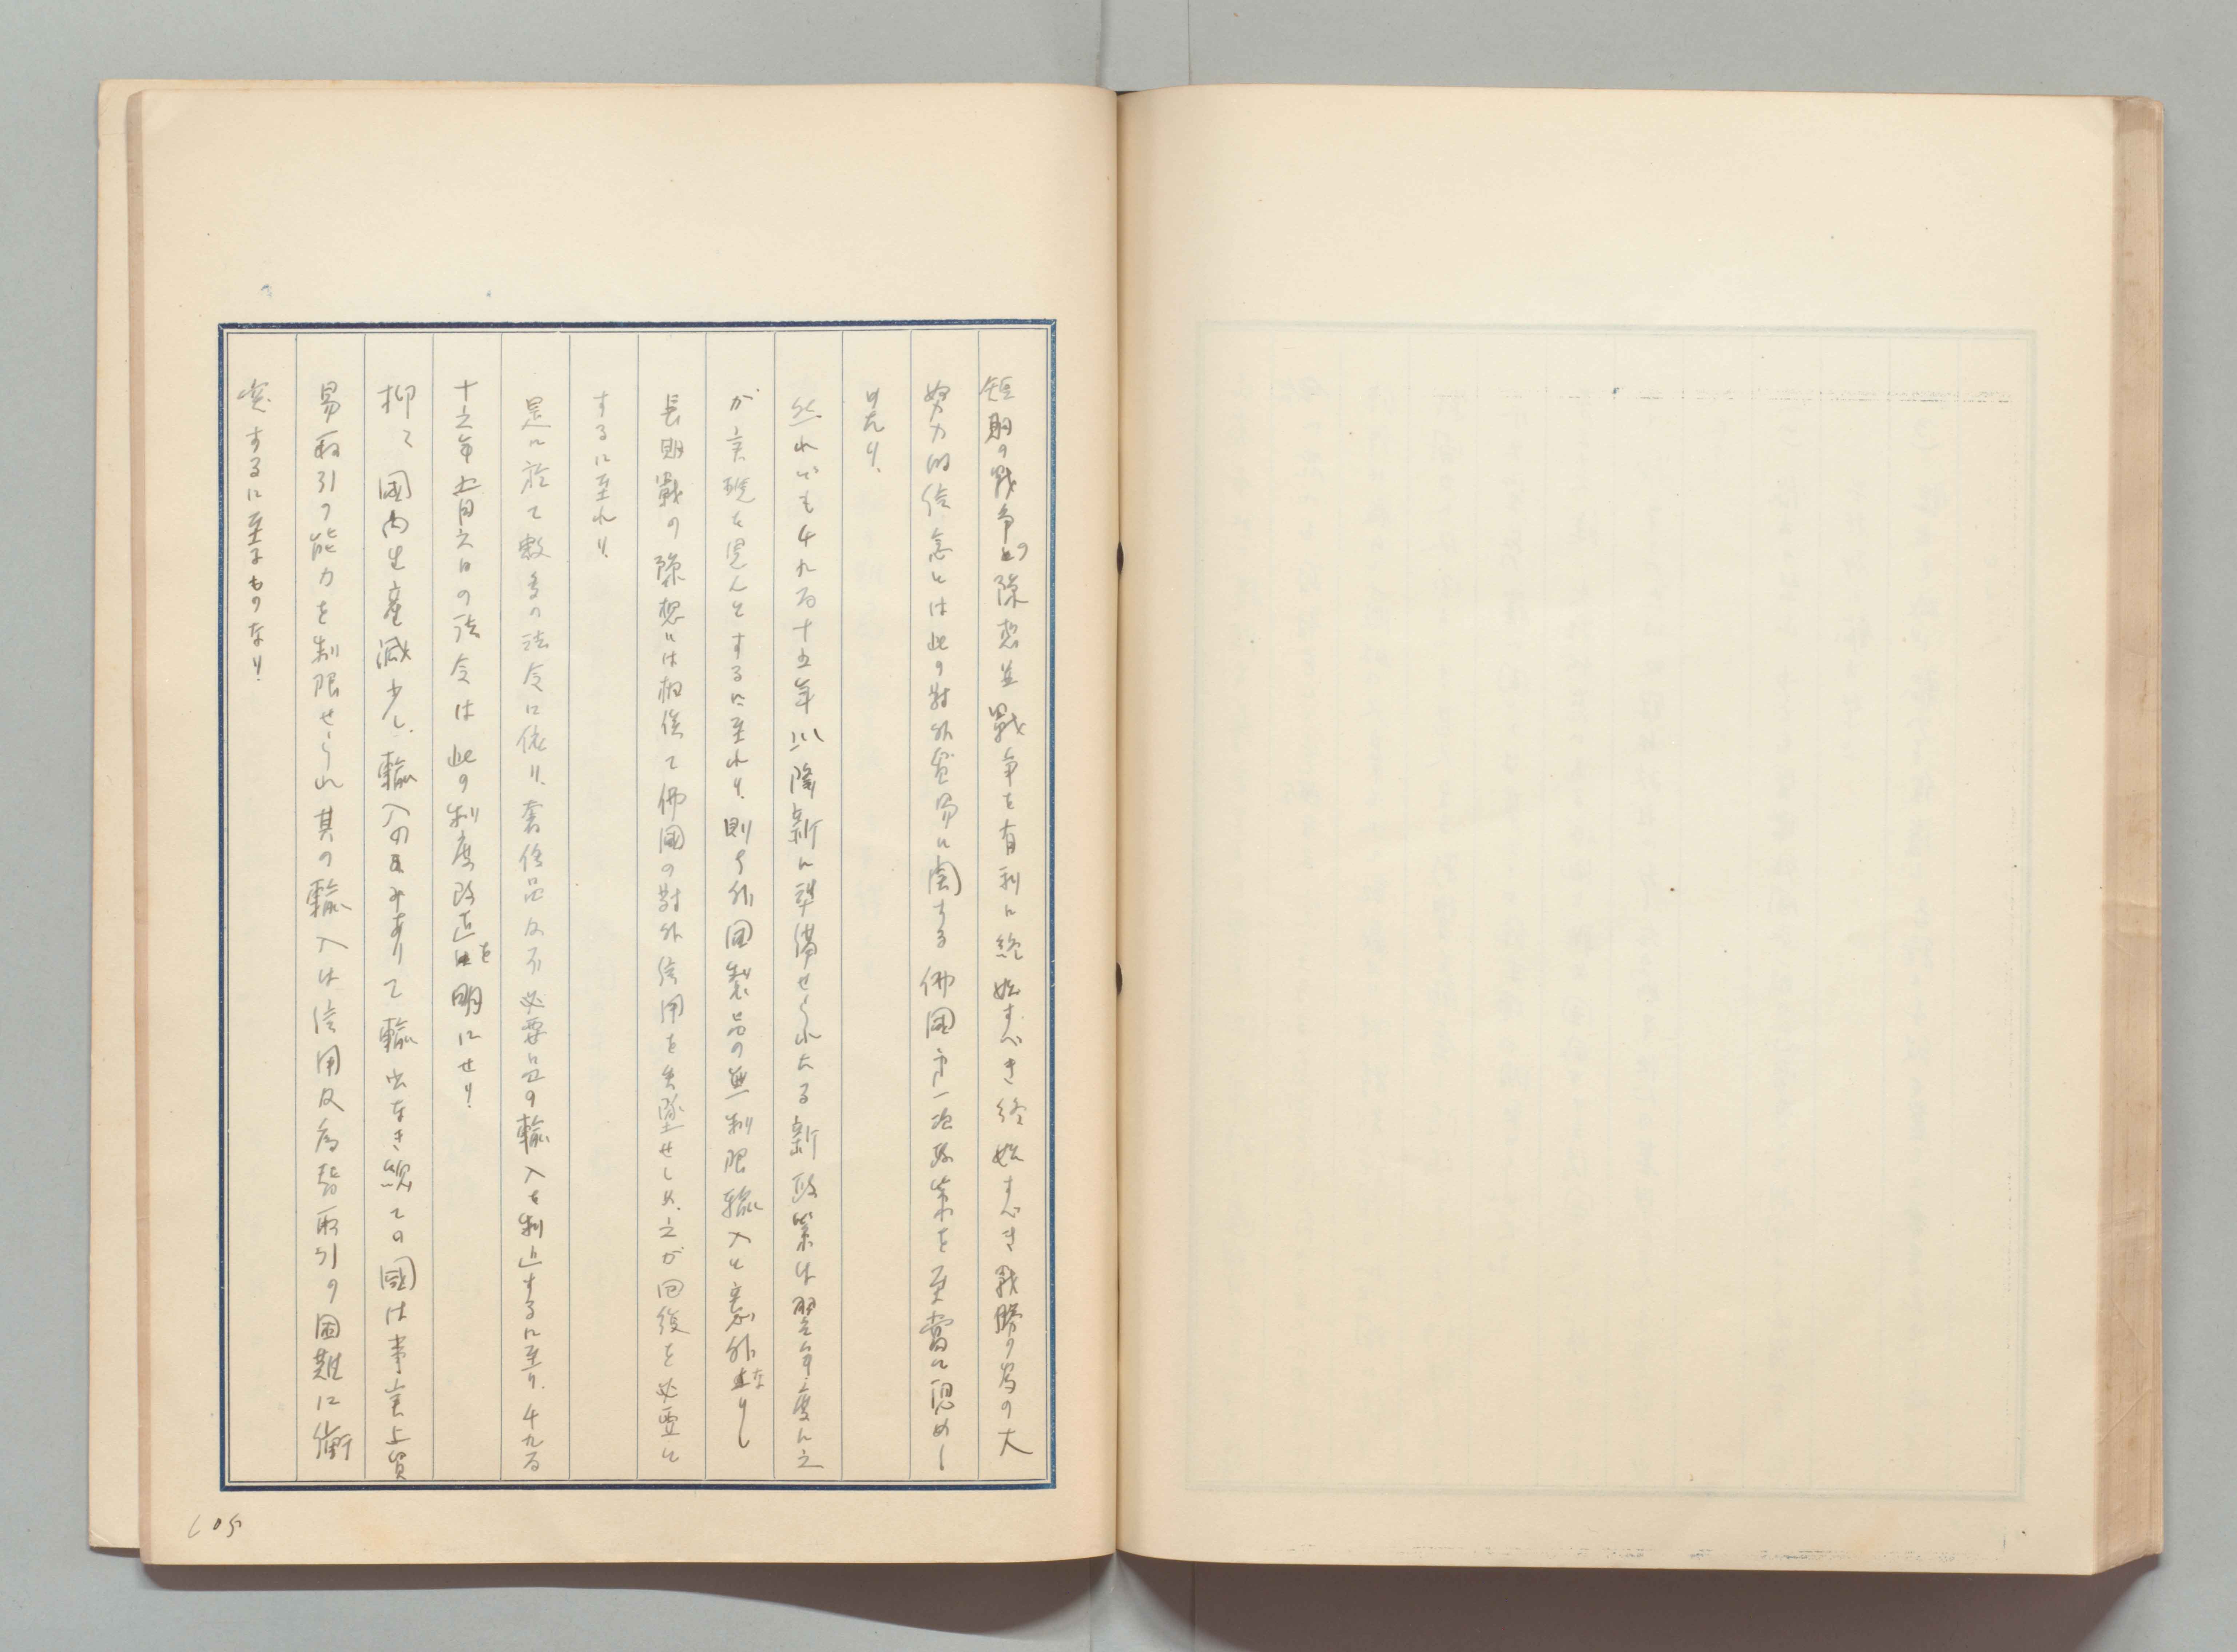 短期の戦争の豫想並戰争を有利に終始すべき終始すべき戦勝の為の大
努力的信念とは此の対外貿易に関する佛國第一次政策を至當に認めし
めたり、
然れども千九百十五年以降新に準備せられたる新政策は翌年度に之
が実現を見んとするに至れり、則ち外国製品の無制限輸入と意外なりし
長期戰の豫想とは相俟て佛國の対外信用を失墜せしめ、之が回復を必要と
するに至れり、
是に於て数多の法令に依り、奢侈品及不必要品の輸入を制止するに至り、千九百
十六年五月六日の法令は此の制度改正を明にせり、
抑て國内生産減少し、輸入のみありて輸出なき總ての國は事実上貿
易取引の能力を制限せられ其の輸入は信用及為替取引の困難に衝
突するに至るものなり、
105